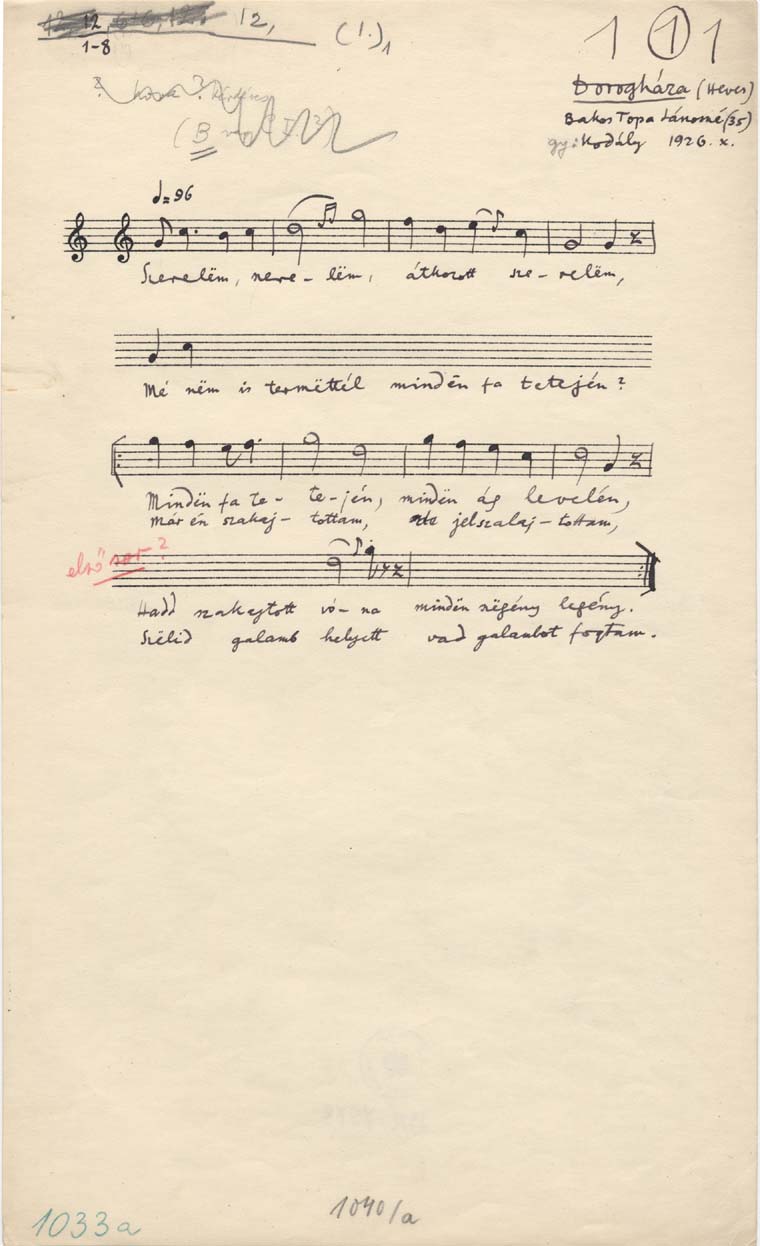 12, (1.)1
12
1-8
1 1 1
Dorogháza (Heves)
Bakos Topa Jánosné (35)
gy: Kodály 1926. X.
(B
=96
Szerelëm, szere-lëm, átkozott sze-relëm,
Mé nëm is termëttél mindën fa tetején?
Mindën fa te- te-jén, mindën ág levelén,
már én szakaj- tottam, de jelszalaj-tottam,
első sor?
Hadd szakajtott vó-na mindën szëgény legény.
Szëlid galamb helyett vad galambot fogtam.
1033a
1040/a